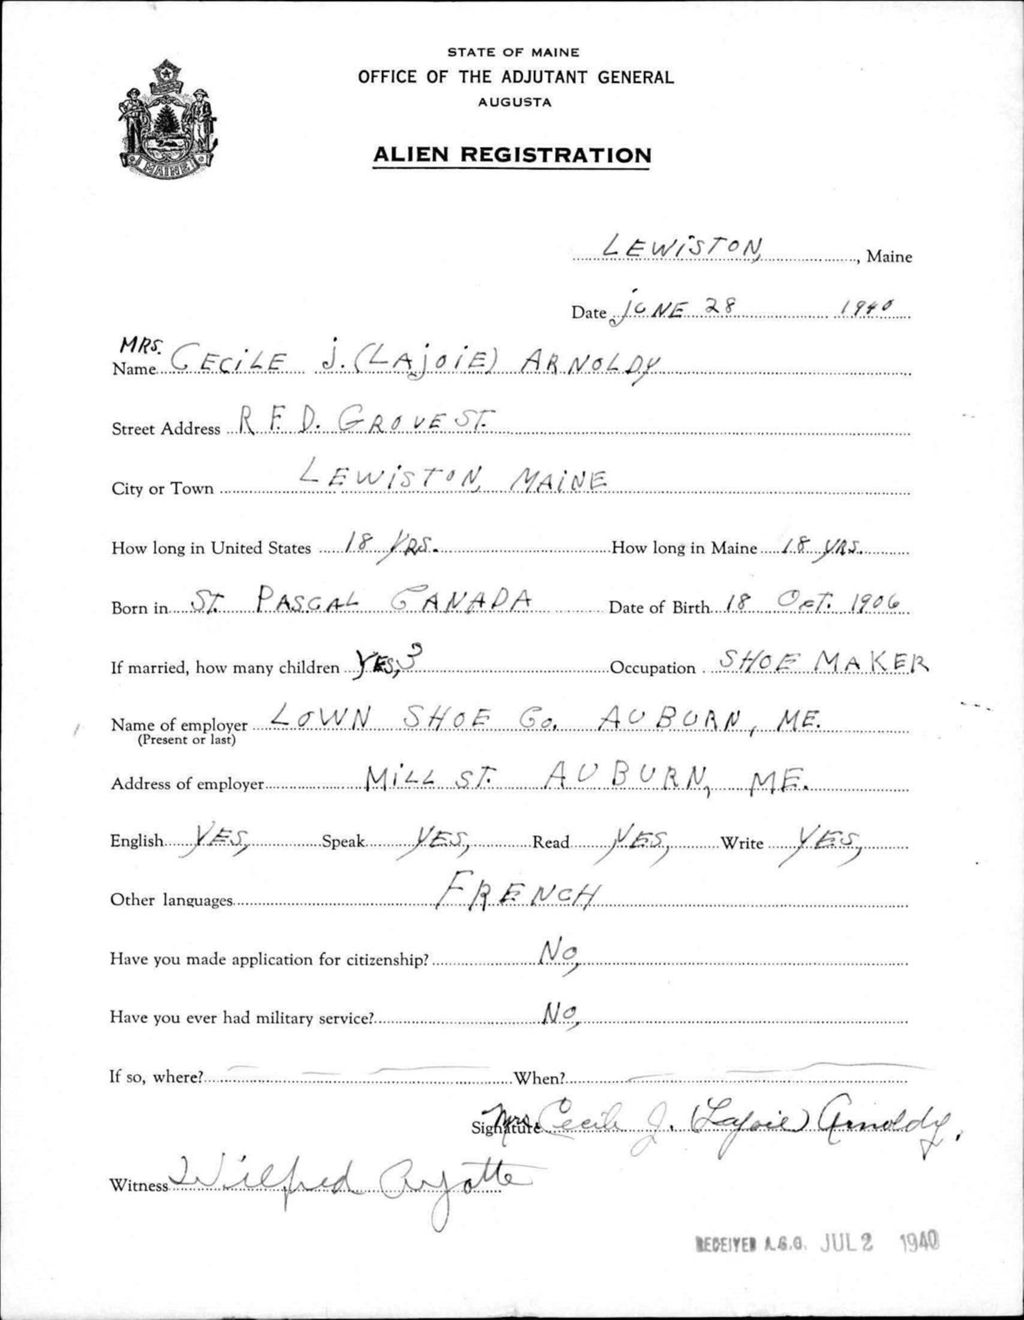 STATE OF MAINE
OFFICE OF THE ADJUTANT GENERAL
AUGUSTA
ALIEN REGISTRATION
MAINE
LEWISTON, , Maine
Date JUNE 28 1940
MRS.
Name CECILE J. (LAJOIE) ARNOLDY
Street Address R.F.D. GROVE ST.
City or Town LEWISTON, MAINE
How long in United States 18 YRS. How long in Maine 18 YRS.
Born in ST. PASCAL CANADA Date of Birth 18 OCT. 1906
If married, how many children YES, 3 Occupation SHOE MAKER
Name of employer LOWN SHOE Co. AUBURN, ME.
(Present or last)
Address of employer MILL ST. AUBURN, ME.
English YES, Speak YES, Read YES, Write YES,
Other languages FRENCH
Have you made application for citizenship? No,
Have you ever had military service? No,
If so, where? When?
Signature Mrs. Cecile J. (Lajoie) Arnoldy.
Witness Wilfred Ayotte
RECEIVED A.G.O. JUL 2 1940